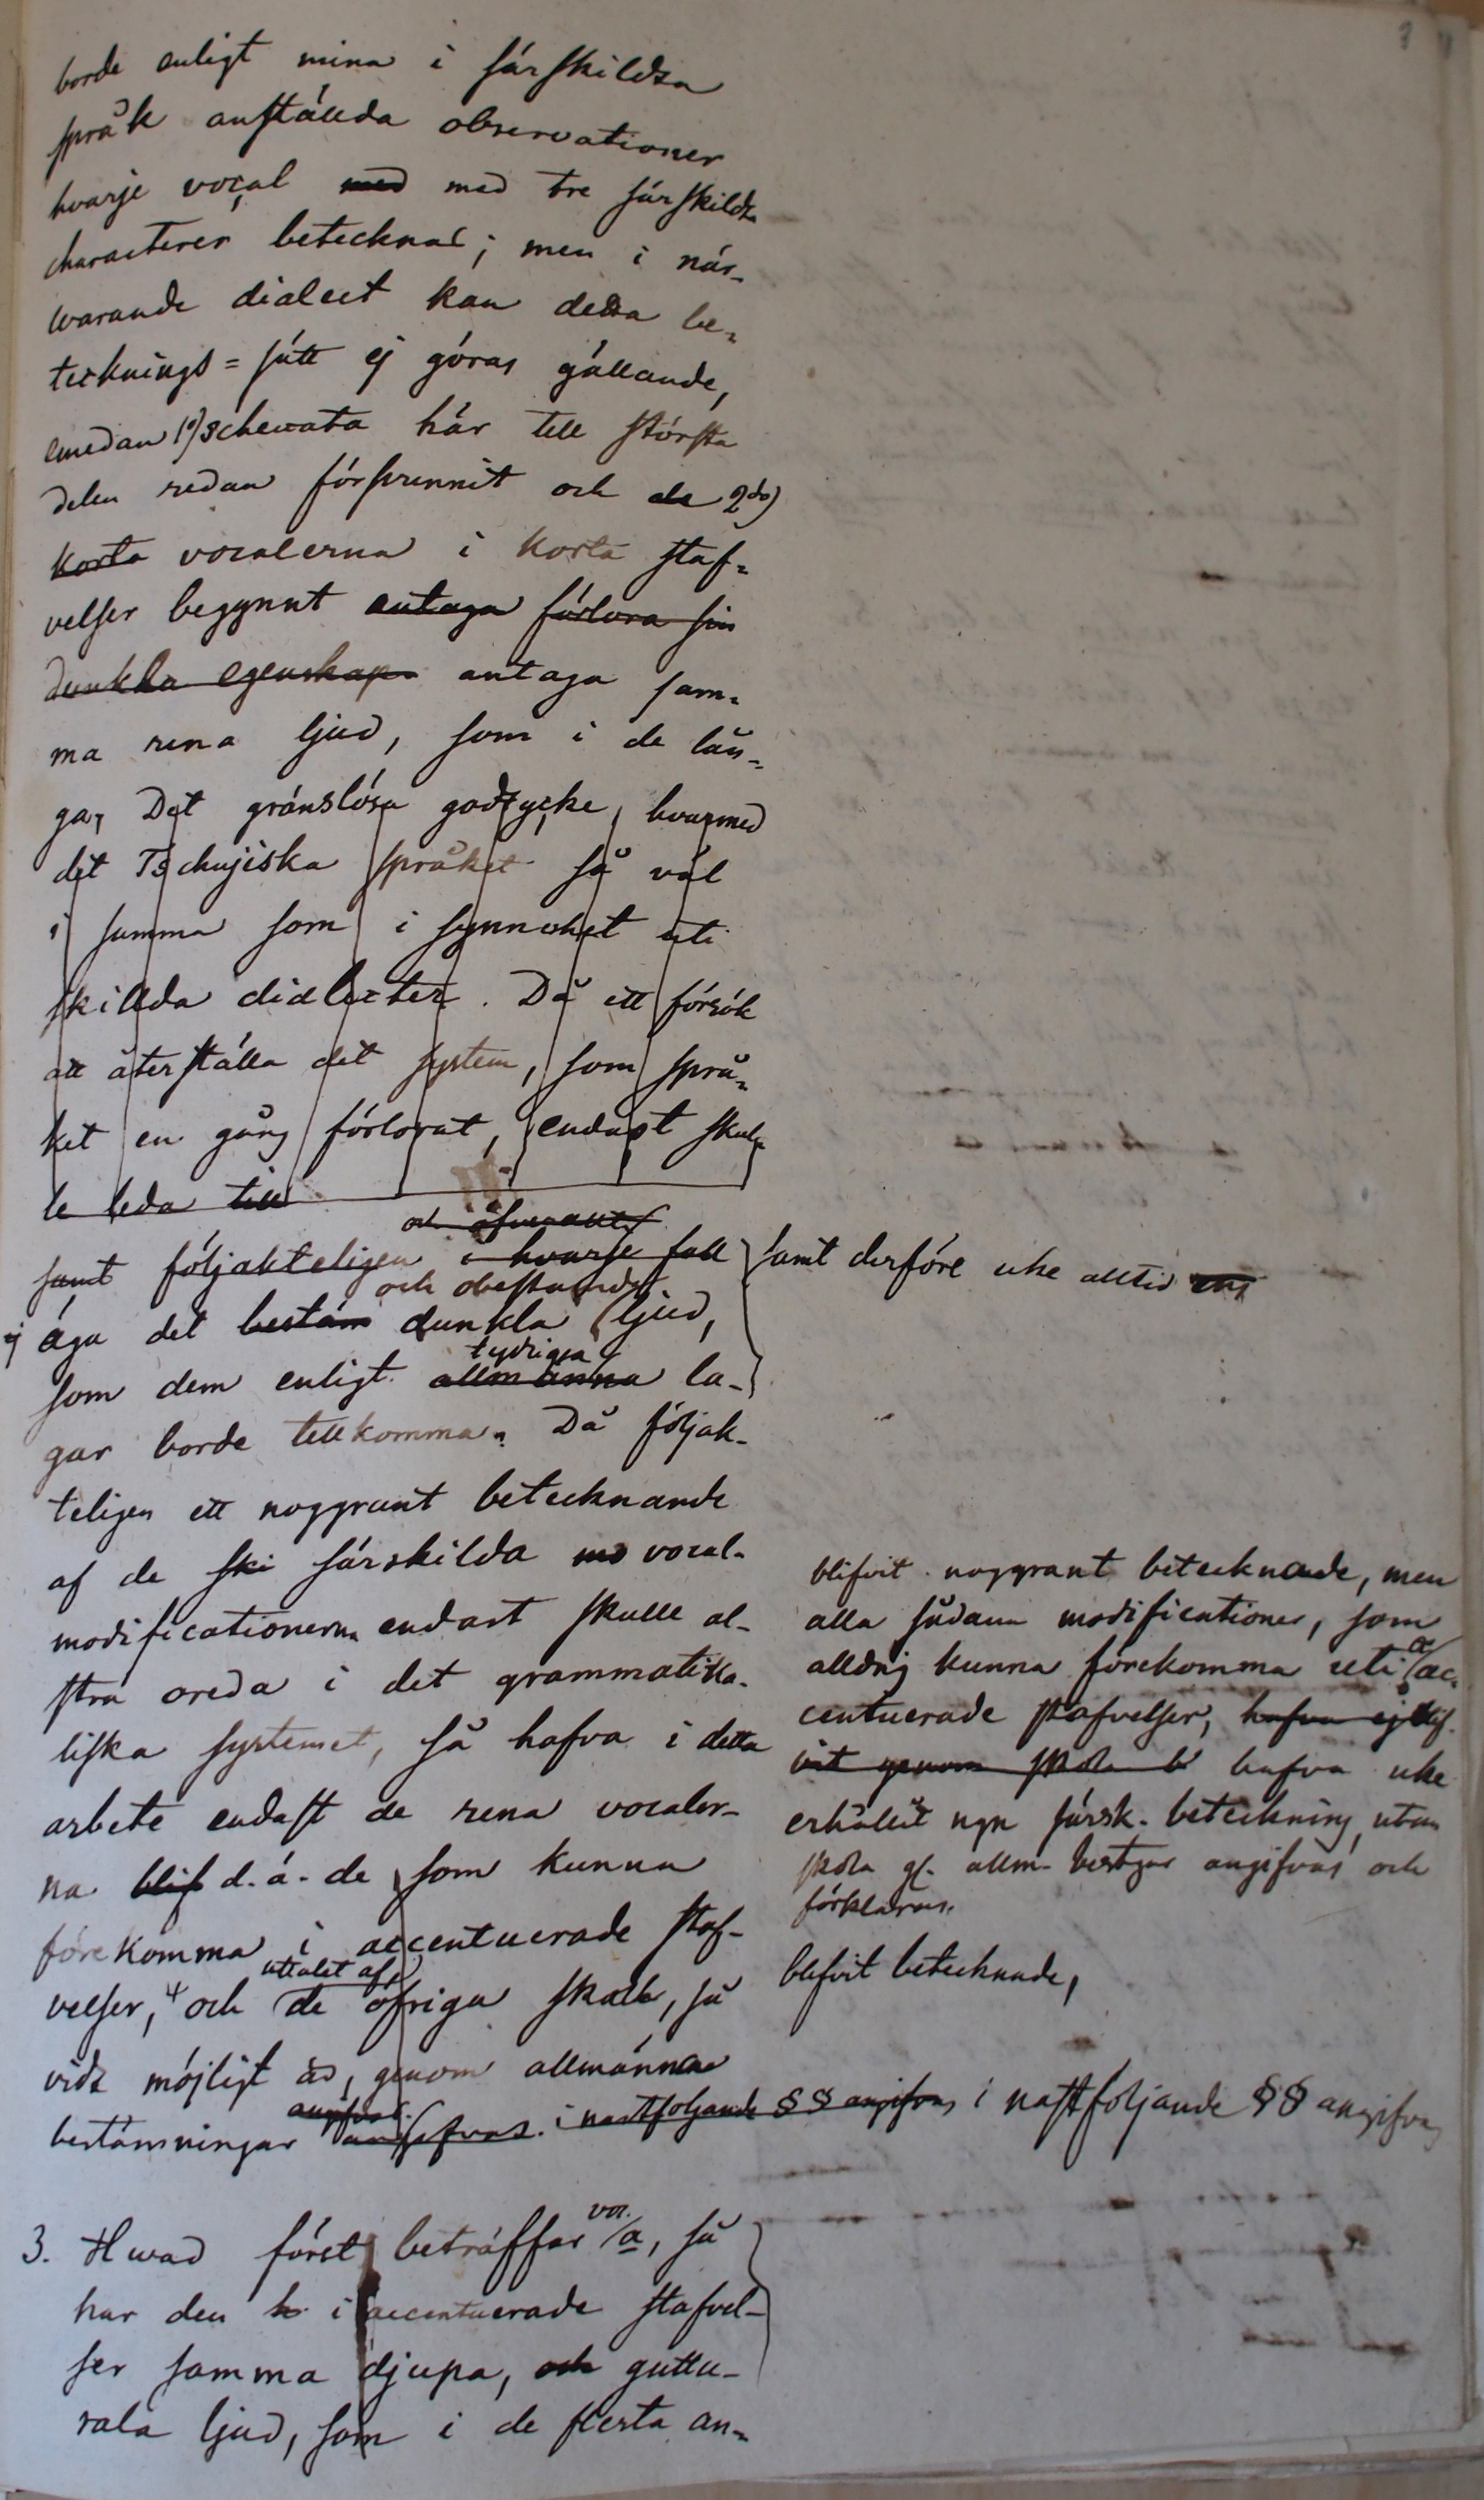 borde enligt mina i särskildta
språk anställda observationer
hvarje vocal med med tre särskildta
characterer betecknas; men i när-
warande dialect kan detta be-
tecknings=sätt ej göras gällande,
emedan 1º) schewata här till största
delen redan försvunnit och de 2do)
korta vocalerna i korta staf-
velser begynnt antaga förlora sin
dunkla egenskap antaga sam-
ma rena ljud, som i de lån-
ga, Det gränslösa godtycke, hvarmed
det Tschujiska språket så väl
i summa som i synnerhet uti
skillda dialecter. Då ett försök
att återställa det system, som språ-
ket en gång förlorat, endast skul-
le leda till
och
samt följakteligen i hvarje fall samt derföre icke alltid ens
och obestämdt
ej äga det bestäm dunkla ljud,
tydliga
som dem enligt allmänna la-
gar borde tillkomma. Då följak-
teligen ett noggrant betecknande
af de ski särskilda mo vocal-
modificationerna endast skulle al-
stra oreda i det grammatika-
liska systemet, så hafva i detta
arbete endast de rena vocaler-
na blif d.ä. de som kunna
förekomma i accentuerade staf-
uttalet af
velser, och de öfriga skall, så
vidt möjligt är, genom allmänna
angifvas.
bestämningar angifvas. i nästföljande §§ angifvas i nästföljande §§ angifvas
blifvit noggrant betecknade, men
alla sådana modificationer, som
alldrig kunna förekomma uti ac-
centuerade stafvelser, hafva ej blif-
vit genom skola b hafva icke
erhållit ngn särsk. beteckning, utan
skola gm. allm. bestgar angifvas och
förklaras.
blifvit betecknade,
voc.
3. Hwad först beträffar a, så
har den h i accentuerade stafvel-
ser samma djupa, och guttu-
rala ljud, som i de flesta an-